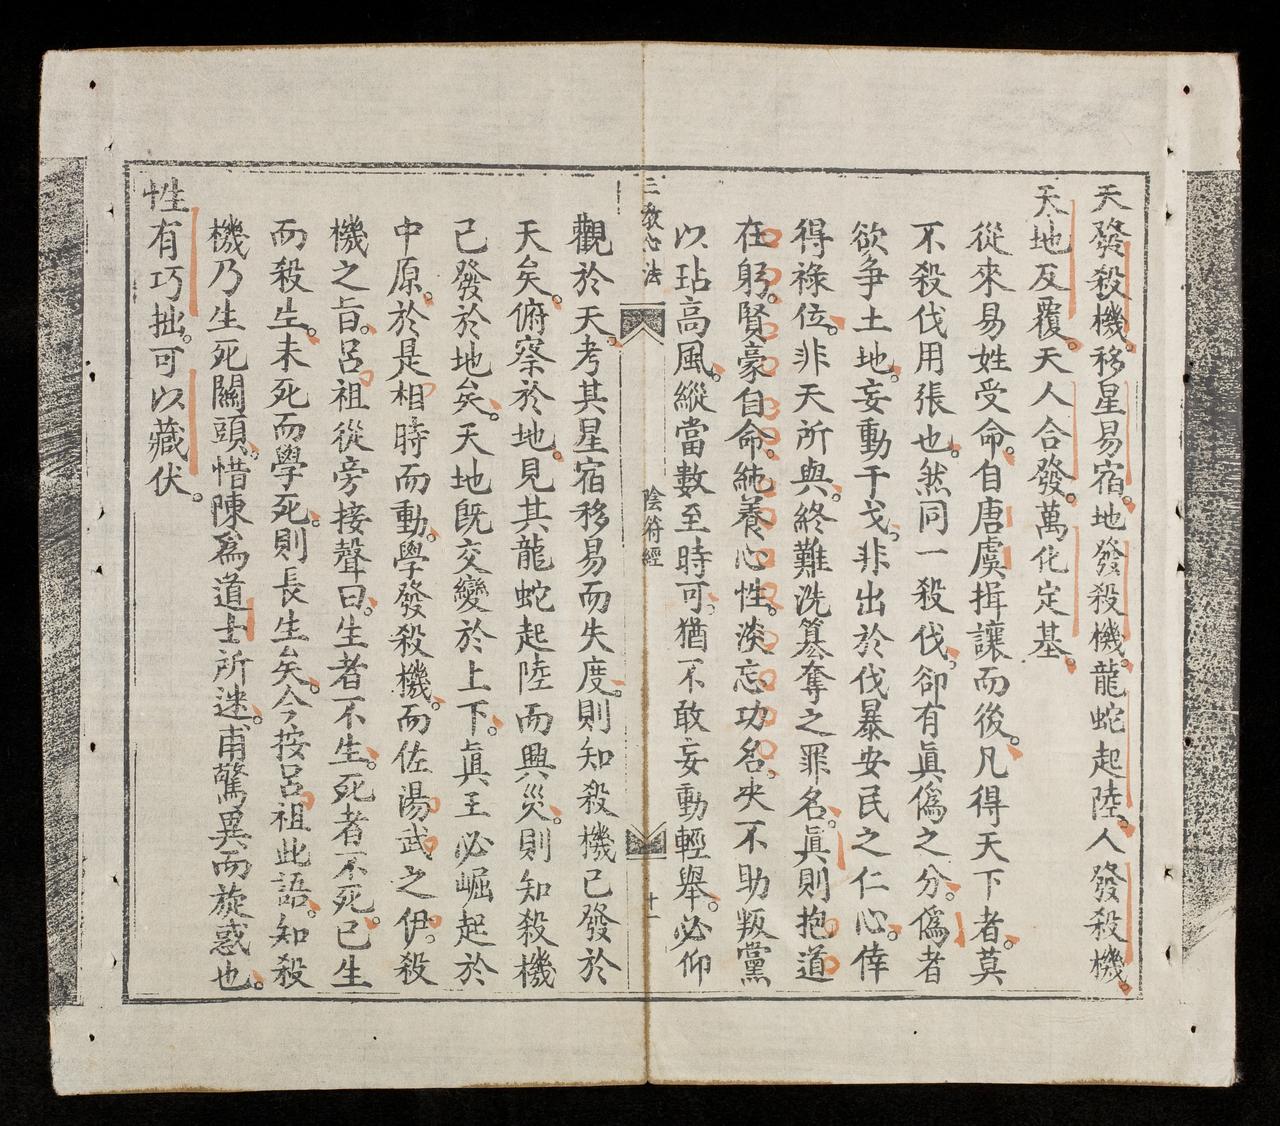 天發殺機。移星易宿。地發殺機。龍蛇起陸。人發殺機。
天地反覆。天人合發。萬化定基。
從來易姓受命。自唐虞揖讓而後。凡得天下者。莫
不殺伐用張也。然同一殺伐。卻有眞僞之分。僞者
欲爭土地。妄動干戈。非出於伐暴安民之仁心。倖
得祿位。非天所與。終難洗篡奪之罪名。眞則抱道
在躬。賢豪自命。純養心性。淡忘功名。央不助叛黨
以玷高風。縱當數至時可。猶不敢妄動輕舉。必仰
三教心法
陰符經
十一
觀於天。考其星宿移易而失度。則知殺機已發於
天矣。俯察於地。見其龍蛇起陸而興災。則知殺機
已發於地矣。天地旣交變於上下。眞王必崛起於
中原。於是相時而動。學發殺機。而佐湯武之伊。殺
機之旨。呂祖從旁接聲曰。生者不生。死者不死。已生
而殺生。未死而學死。則長生矣。今按呂祖此語。知殺
機乃生死關頭。惜陳爲道士所迷。甫驚異而旋惑也。
性有巧拙。可以藏伏。